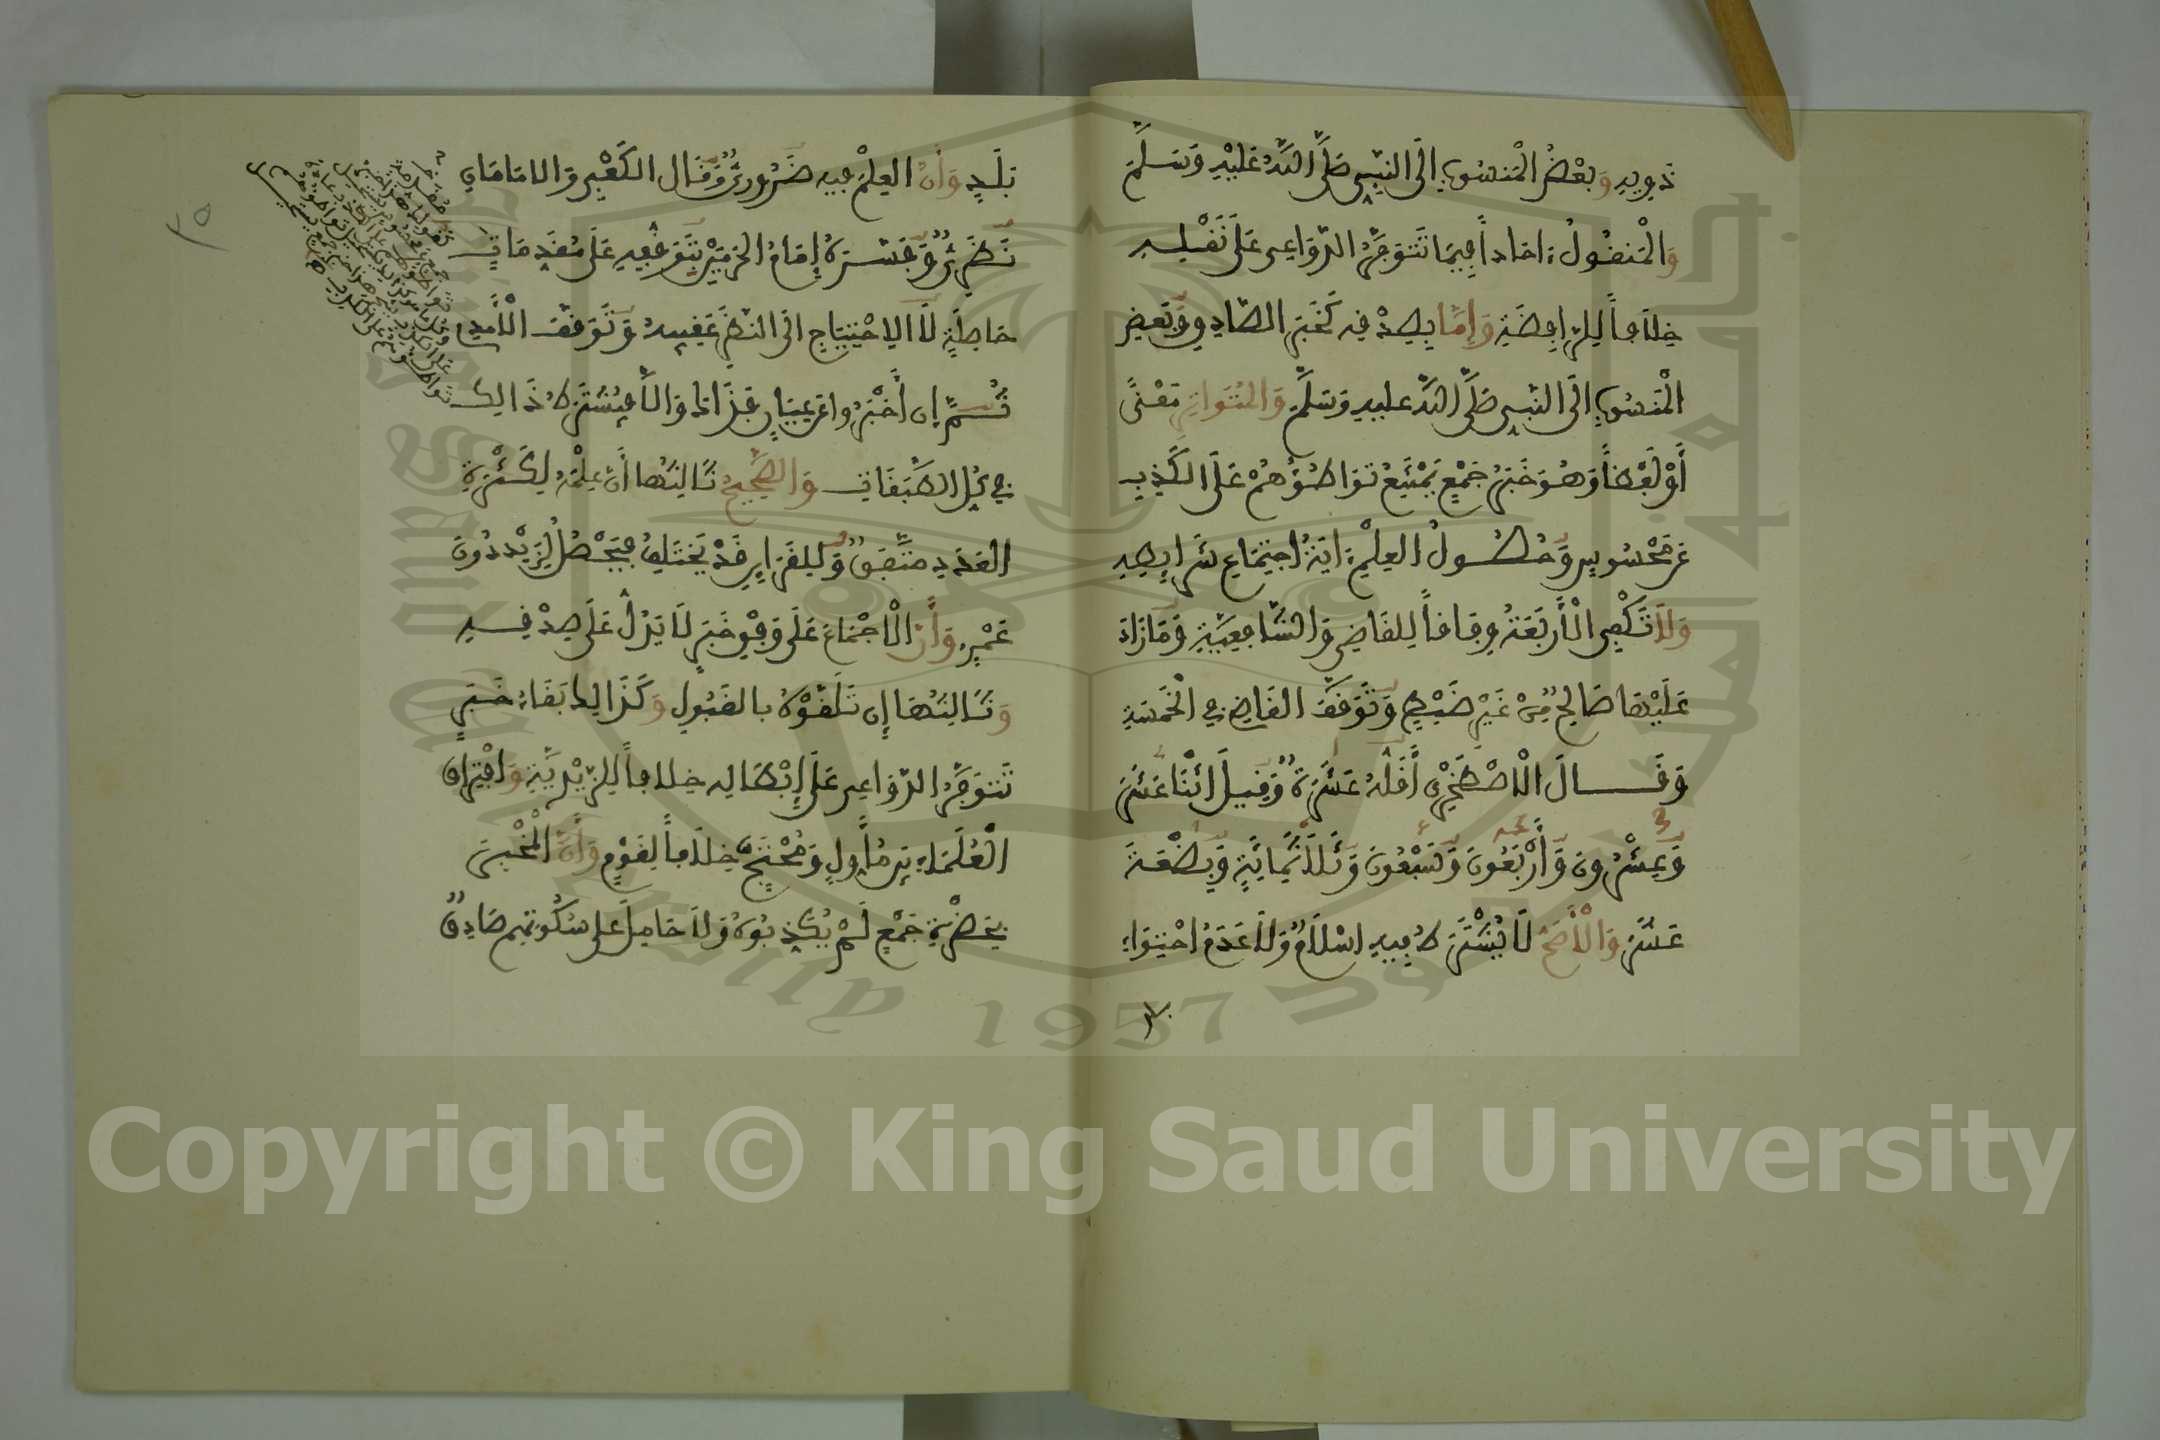 ذويه وبعض المنسوب الى النبي صلى الله عليه وسلم
والمنقول ءاحادا فيما تتوفر الدواعي على نقله
خلافا للرافضة وإما بصدقه كخبر الصادق وبعض
المنسوب الى النبي صلى الله عليه وسلم والمتواتر معنى
أو لفظا وهو خبر جمع يمتنع تواطؤهم على الكذب
عن محسوس وحصول العلم ءاية اجتماع شرايطه
ولا تكفي الأربعة وفاقا للقاضي والشافعية وما زاد
عليها صالح من غير ضبط وتوقف القاضي في الخمسة
وقال الاصطخري أقله عشرة وقيل اثنا عشر
وعشرون وأربعون وسبعون وثلاثمائة وبضعة
عشر والأصح لا يشترط فيه اسلام ولا عدم احتواء
بلد
بلد وأن العلم فيه ضروري وقال الكعبي والامامان
نظري وفسره إمام الحرمين بتوقفه على مقدمات
حاصلة لا الاحتياج الى النظر عقيبه وتوقف الآمدي
ثم إن أخبروا عن عيان فذاك والا فيشترط ذالك
في كل الطبقات والصحيح ثالثها أن علمه لكثرة
العدد متفق وللقراين قد يختلف فيحصل لزيد دون
عمرو وأن الاجماع على وفق خبر لا يدل على صدقه
وثالثها إن تلقوه بالقبول وكذالك بقاء خبر
تتوفر الدواعي على إبطاله خلافا للزيدية وافتراق
العلماء بين مؤول ومحتج خلافا لقوم وأن المخبر
بحضرة جمع لم يكذبوه ولا حامل على سكوتهم صادق
٢٥
Copyright © King Saud University
1957